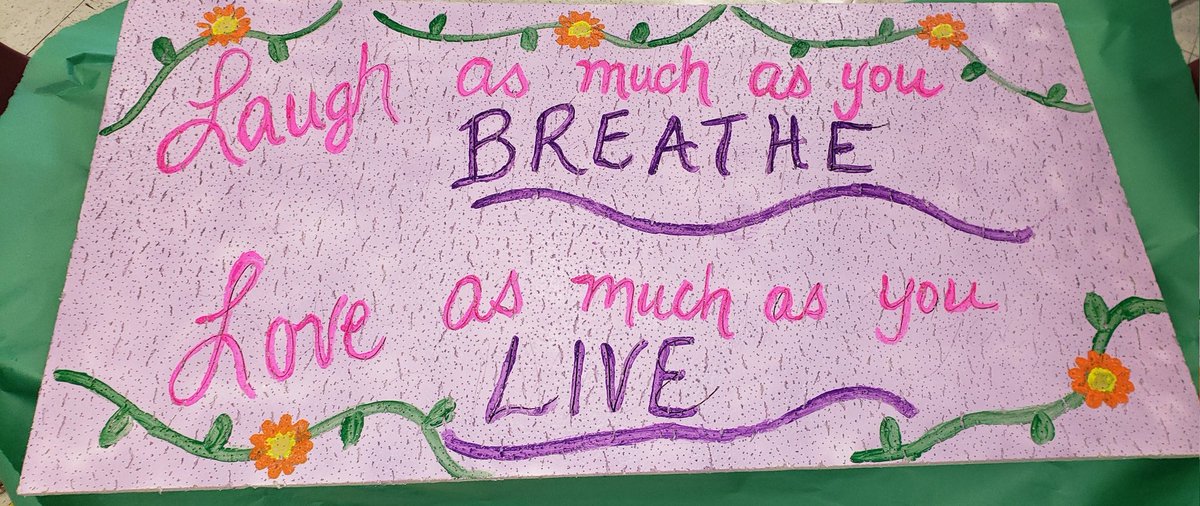 Laugh as much as you
BREATHE
Love as much as you
LIVE